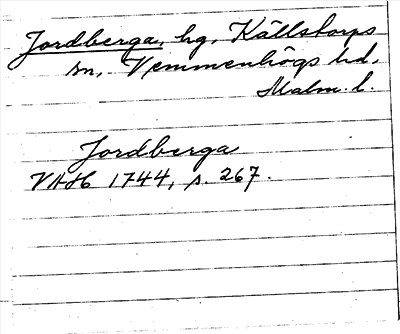 Jordberga, hg, Källstorps
sn, Vemmenhögs hd,
Malm. l.
Jordberga
VAH 1744, s. 267.